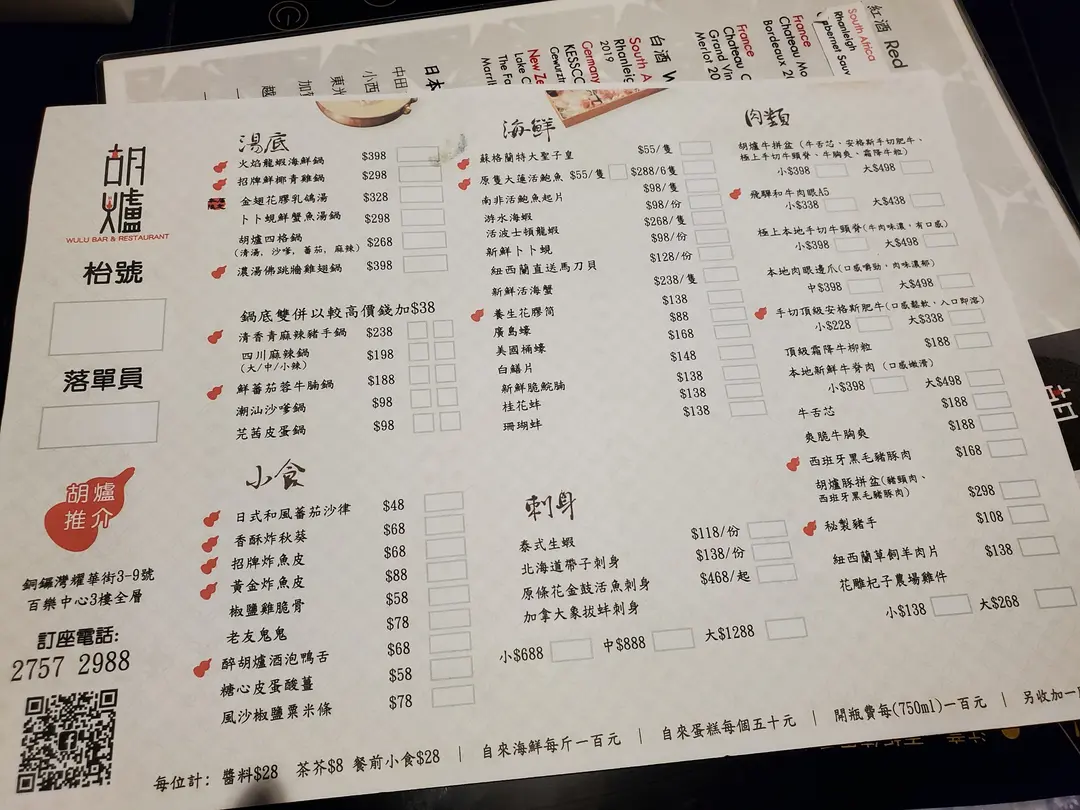 胡爐
WULU BAR & RESTAURANT
枱號
落單員
胡爐
推介
銅鑼灣耀華街3-9號
百樂中心3樓全層
訂座電話:
2757 2988
湯底
火焰龍蝦海鮮鍋 $398
招牌鮮椰青雞鍋 $298
金翅花膠乳鴿湯 $328
卜卜蜆鮮蟹魚湯鍋 $298
胡爐四格鍋 $268
(清湯, 沙嗲, 蕃茄, 麻辣)
濃湯佛跳牆雞翅鍋 $398
鍋底雙併以較高價錢加$38
清香青麻辣豬手鍋 $238
四川麻辣鍋 $198
(大/中/小辣)
鮮蕃茄蓉牛腩鍋 $188
潮汕沙嗲鍋 $98
芫茜皮蛋鍋 $98
小食
日式和風蕃茄沙律 $48
香酥炸秋葵 $68
招牌炸魚皮 $68
黃金炸魚皮 $88
椒鹽雞脆骨 $58
老友鬼鬼 $78
醉胡爐酒泡鴨舌 $68
糖心皮蛋酸薑 $58
風沙椒鹽粟米條 $78
海鮮
蘇格蘭特大聖子皇 $55/隻
原隻大蓮活鮑魚 $55/隻 $288/6隻
南非活鮑魚起片 $98/隻
游水海蝦 $98/份
活波士頓龍蝦 $268/隻
新鮮卜卜蜆 $98/份
紐西蘭直送馬刀貝 $128/份
新鮮活海蟹 $238/隻
養生花膠筒 $138
廣島蠔 $88
美國桶蠔 $168
白鱔片 $148
新鮮脆鯇腩 $138
桂花蚌 $138
珊瑚蚌 $138
刺身
泰式生蝦 $118/份
北海道帶子刺身 $138/份
原條花金鼓活魚刺身 $468/起
加拿大象拔蚌刺身
小$688 中$888 大$1288
肉類
胡爐牛拼盆 (牛舌芯、安格斯手切肥牛、
極上手切牛頸脊、牛胸爽、霜降牛粒)
小$398 大$498
飛驒和牛肉眼A5
小$338 大$438
極上本地手切牛頸脊(牛肉味濃, 有口感)
小$398 大$498
本地肉眼邊爪(口感嚼勁, 肉味濃郁)
中$398 大$498
手切頂級安格斯肥牛(口感鬆軟, 入口即溶)
小$228 大$338
頂級霜降牛柳粒 $188
本地新鮮牛脊肉 (口感嫩滑)
小$398 大$498
牛舌芯 $188
爽脆牛胸爽 $188
西班牙黑毛豬豚肉 $168
胡爐豚拼盆(豬頸肉、
西班牙黑毛豬豚肉) $298
秘製豬手 $108
紐西蘭草飼羊肉片 $138
花雕杞子農場雞件
小$138 大$268
每位計: 醬料$28 茶芥$8 餐前小食$28 | 自來海鮮每斤一百元 | 自來蛋糕每個五十元 | 開瓶費每(750ml)一百元 | 另收加一
紅酒 Red
South Africa
Rhanleigh
Cabernet Sauv
France
Chateau Ma
Bordeaux 2
France
Chateau C
Grand Vin
Merlot 20
白酒 W
South A
Rhanleig
2019
Germany
KESSC
Gewurtz
New Ze
Lake C
The Fa
Marrl
日本
中田
小西
東光